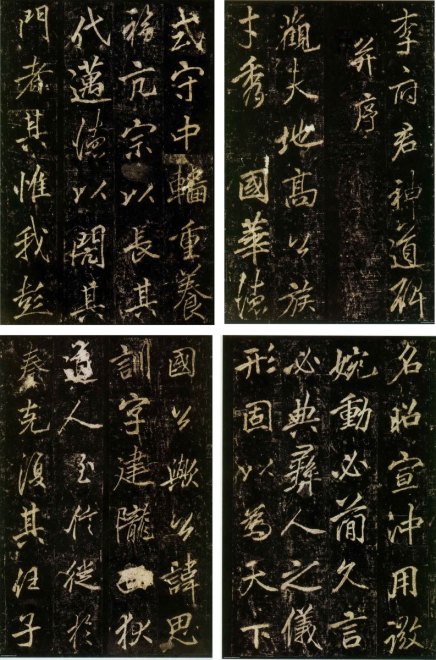 李府君神道碑
并序
觀夫地高公族
才秀國華德
名昭宣沖用微
婉動必簡久言
必典彝人之儀
形固以為天下
式守中輜重養
福亢宗以長其
代邁德以閎其
門者其惟我彭
國公歟公諱思
訓字建隴西狄
道人至信徙於
秦克復其任子